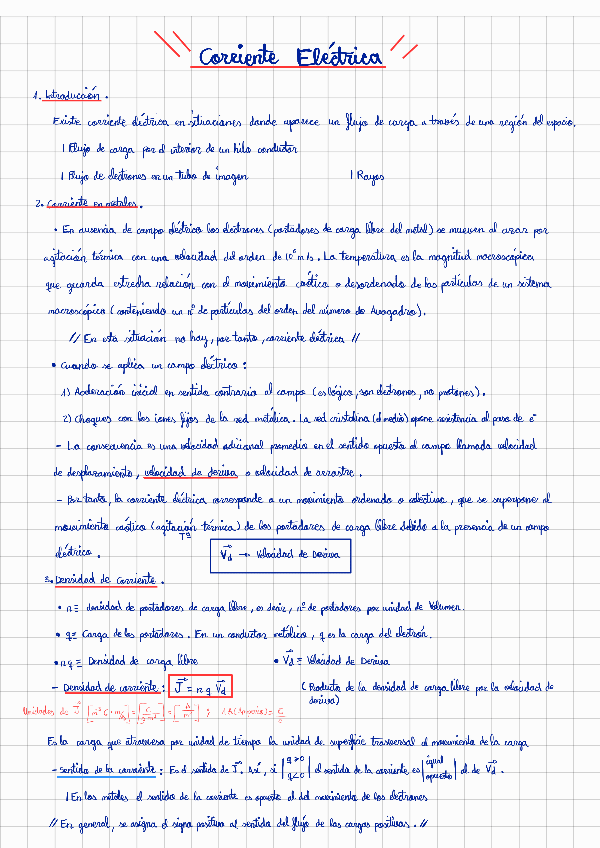 Corriente Eléctrica
1. Introducción.
Existe corriente eléctrica en situaciones donde aparece un flujo de carga a través de una región del espacio.
| Flujo de carga por el interior de un hilo conductor
| Flujo de electrones en un tubo de imagen | Rayos
2. Corriente en metales.
• En ausencia de campo eléctrico los electrones (portadores de carga libre del metal) se mueven al azar por
agitación térmica con una velocidad del orden de 10⁶ m/s. La temperatura es la magnitud macroscópica
que guarda estrecha relación con el movimiento caótico o desordenado de las partículas de un sistema
macroscópico (conteniendo un nº de partículas del orden del número de Avogadro).
// En esta situación no hay, por tanto, corriente eléctrica //
• Cuando se aplica un campo eléctrico:
1) Aceleración inicial en sentido contrario al campo (es lógico, son electrones, no protones).
2) Choques con los iones fijos de la red metálica. La red cristalina (el medio) opone resistencia al paso de e⁻
- La consecuencia es una velocidad adicional promedio en el sentido opuesto al campo llamada velocidad
de desplazamiento, velocidad de deriva o velocidad de arrastre.
- Por tanto, la corriente eléctrica corresponde a un movimiento ordenado o colectivo, que se superpone al
movimiento caótico (agitación térmica) de los portadores de carga libre debido a la presencia de un campo
Tª
eléctrico. V⃗d → Velocidad de Deriva
3. Densidad de Corriente.
• n ≡ densidad de portadores de carga libre, es decir, nº de portadores por unidad de Volumen.
• q ≡ Carga de los portadores. En un conductor metálico, q es la carga del electrón.
• nq ≡ Densidad de carga libre • V⃗d ≡ Velocidad de Deriva
- Densidad de corriente: J⃗ = n q V⃗d (Producto de la densidad de carga libre por la velocidad de
deriva)
Unidades de J⃗
Es la carga que atraviesa por unidad de tiempo la unidad de superficie trasversal al movimiento de la carga
- Sentido de la corriente: Es el sentido de J⃗. Así, si | q>0 q<0 | el sentido de la corriente es | igual opuesto | al de V⃗d.
| En los metales el sentido de la corriente es opuesto al del movimiento de los electrones
// En general, se asigna el signo positivo al sentido del flujo de las cargas positivas. //